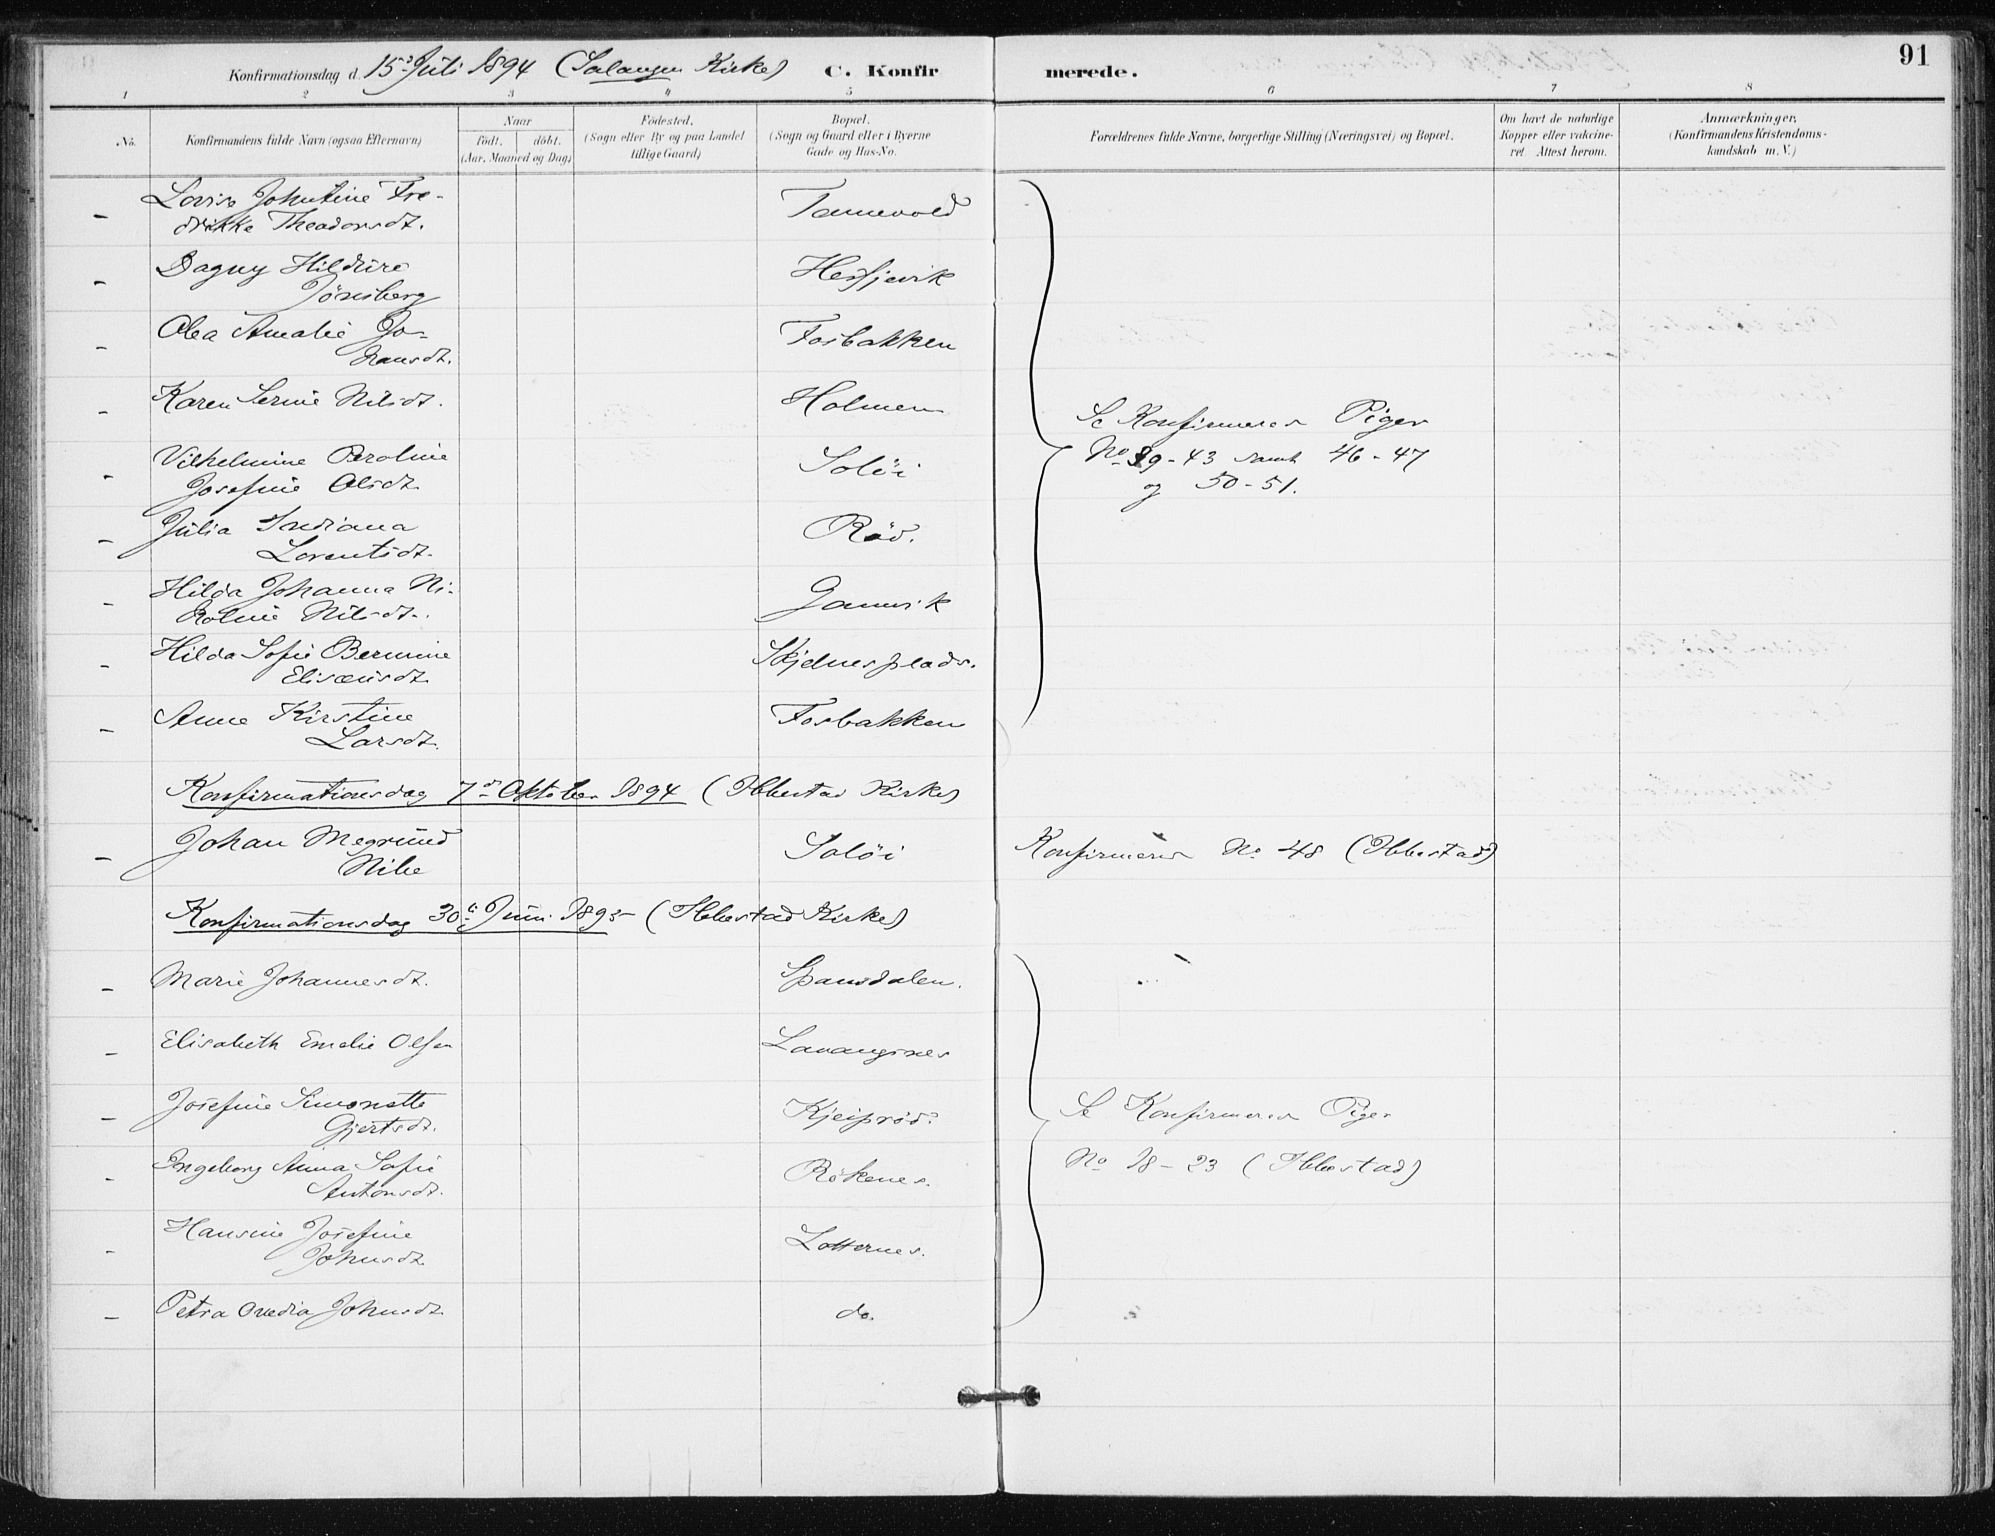 91
Konfirmationsdag d. 15de Juli 1894 (Salangen Kirke) C. Konfirmerede.
1 2 3 4 5 6 7 8
No. Konfirmandens fulde Navn (ogsaa Efternavn)
Naar
födt. döbt.
(Aar, Maaned og Dag)
Födested.
(Sogn eller By og paa Landet
tillige Gaard)
Bopæl.
(Sogn og Gaard eller i Byerne
Gade og Hus-No.
Forældrenes fulde Navne, borgerlige Stilling (Næringsvei) og Bopæl.
Om havt de naturlige
Kopper eller vakcine-
ret. Attest herom.
Anmærkninger,
(Konfirmandens Kristendoms-
kundskab m. V.)
– Lovise Johntine Fre-
drikke Theadorsdt. Tannevold
– Dagny Hildure
Tönsberg
– Olea Amalie Jo-
hansdt. Fosbakken
– Karen Serine Nilsdt. Holmen
Se Konfirmerede Piger
No 39-43 samt 46-47
og 50-51.
– Vilhelmine Caroline
Josefine Olsdt. Solöi
– Julia Indiana
Lorentsdt. Röd.
– Hilda Johanna Ni-
koline Nilsdt. Gamvik
– Hilda Sofie Bermine
Eliseusdt. Skjelnesplads.
– Anne Kirstine
Larsdt. Fosbakken
Konfirmationsdag 7de Oktober 1894 (Ibbestad Kirke)
– Johan Megrund
Nibe Solöi Konfirmerede No 48 (Ibbestad)
Konfirmationsdag 30te Juni 1895 (Ibbestad Kirke)
– Marie Johannesdt. Spansdalen.
– Elisabeth Emelie Olsen Lavangsnes
– Josefine Simonette
Gjertsdt. Kjeipröd.
Se Konfirmerede Piger
No 18-23 (Ibbestad)
– Ingeborg Anna Sofie
Antonsdt. Rökenes.
– Hansine Josefine
Johnsdt. Lotternes.
– Petra Ovedia Johnsdt. do.